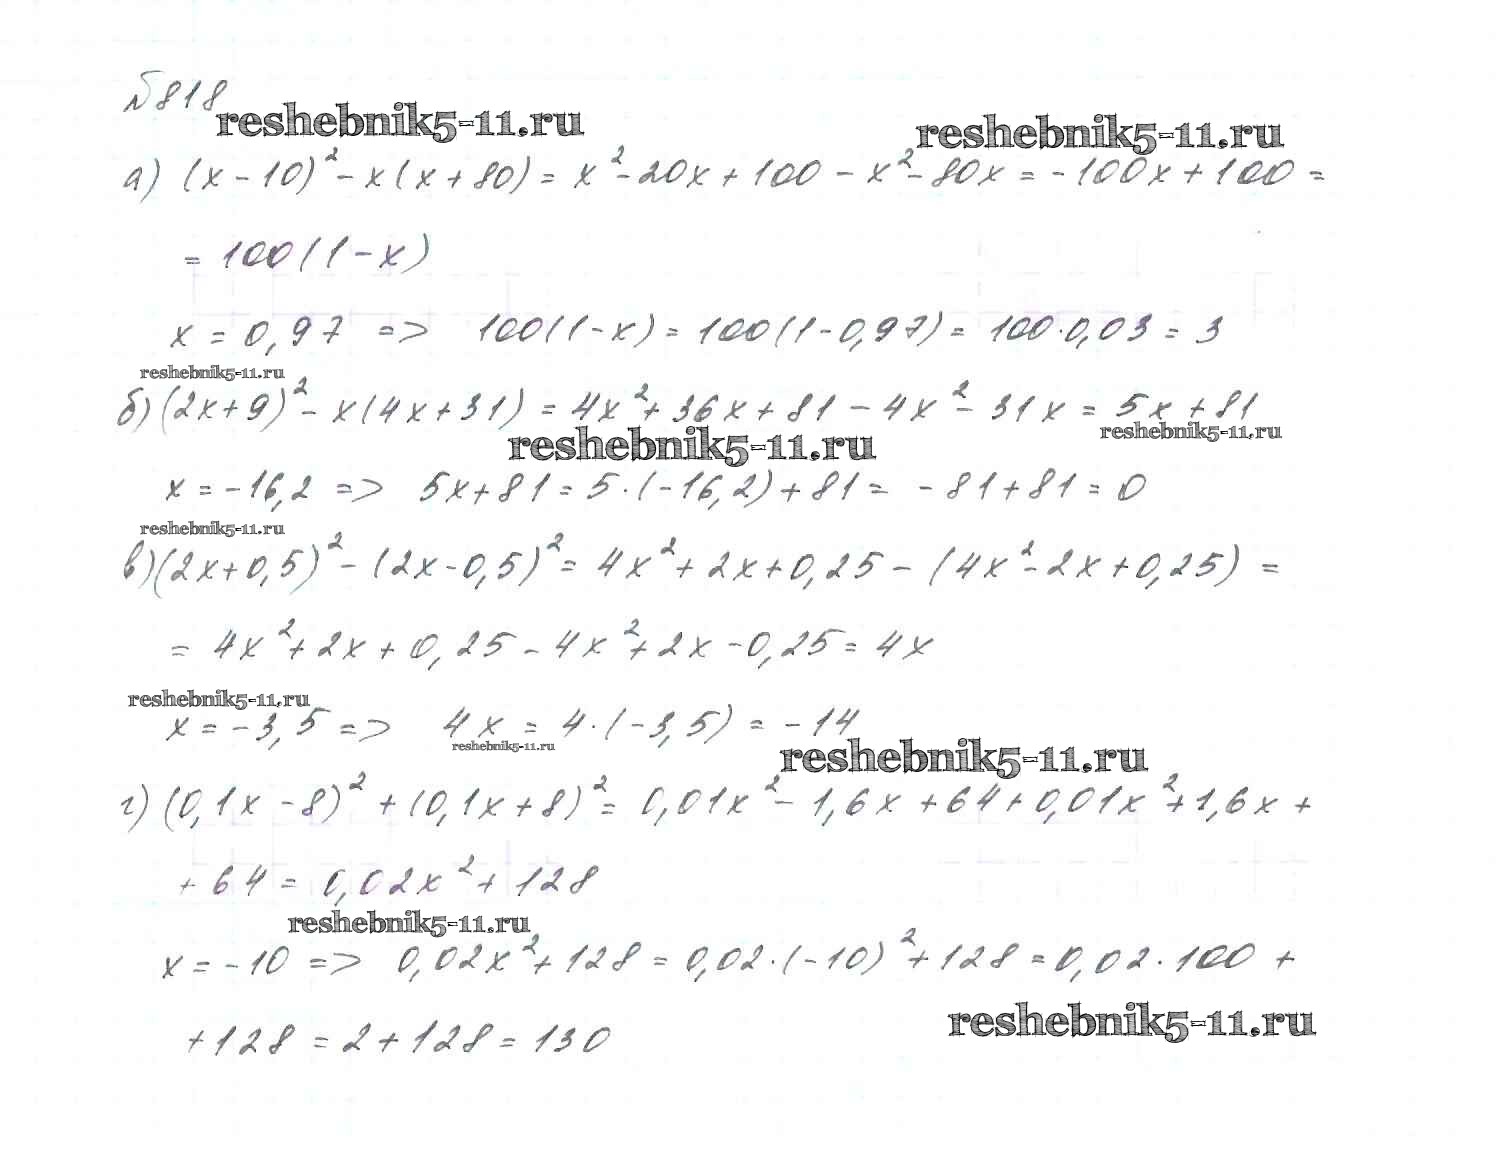 №818
reshebnik5-11.ru
reshebnik5-11.ru
а) (x-10)²-x(x+80)=x²-20x+100-x²-80x=-100x+100=
=100(1-x)
x=0,97 => 100(1-x)=100(1-0,97)=100·0,03=3
reshebnik5-11.ru
б)(2x+9)²-x(4x+31)=4x²+36x+81-4x²-31x=5x+81
reshebnik5-11.ru
reshebnik5-11.ru
x=-16,2 => 5x+81=5·(-16,2)+81=-81+81=0
reshebnik5-11.ru
в)(2x+0,5)²-(2x-0,5)²=4x²+2x+0,25-(4x²-2x+0,25)=
=4x²+2x+0,25-4x²+2x-0,25=4x
reshebnik5-11.ru
x=-3,5 => 4x=4·(-3,5)=-14
reshebnik5-11.ru
reshebnik5-11.ru
г)(0,1x-8)²+(0,1x+8)²=0,01x²-1,6x+64+0,01x²+1,6x+
+64=0,02x²+128
reshebnik5-11.ru
x=-10 => 0,02x²+128=0,02·(-10)²+128=0,02·100+
reshebnik5-11.ru
+128=2+128=130